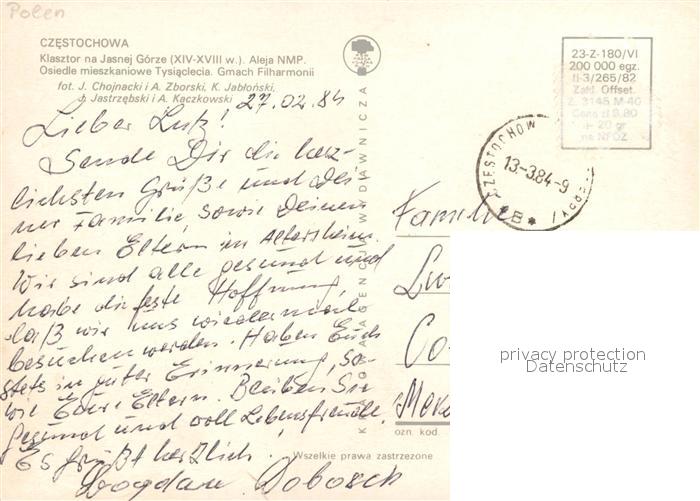 Polen
CZĘSTOCHOWA
Klasztor na Jasnej Górze (XIV-XVIII w.). Aleja NMP.
Osiedle mieszkaniowe Tysiąclecia. Gmach Filharmonii
fot. J. Chojnacki i A. Zborski, K. Jabłoński,
J. Jastrzębski i A. Kaczkowski
27.02.84
Lieber Lutz!
Sende Dir die herz-
lichsten Grüße und Dei
ner Familie, sowie Deinen
lieben Eltern im Altersheim.
Wir sind alle gesund und
habe die feste Hoffnung,
daß wir uns wiedermal
besuchen werden. Haben Euch
stets in guter Erinnerung, so-
wie Eure Eltern. Bleiben Sie
gesund und voll Lebensfreude.
Es grüßt herzlich!
Bogdan Dobosch
WYDAWNICZA
23-Z-180/VI
200 000 egz.
II-3/265/82
Zakł. Offset.
Z. 3145 M-40
Cena zł 9.80
+ 20 gr
na NFOZ
CZĘSTOCHOWA
13.-3.84-9
* 1B *
Familie
Co
ozn. kod.
Wszelkie prawa zastrzeżone
privacy protection
Datenschutz